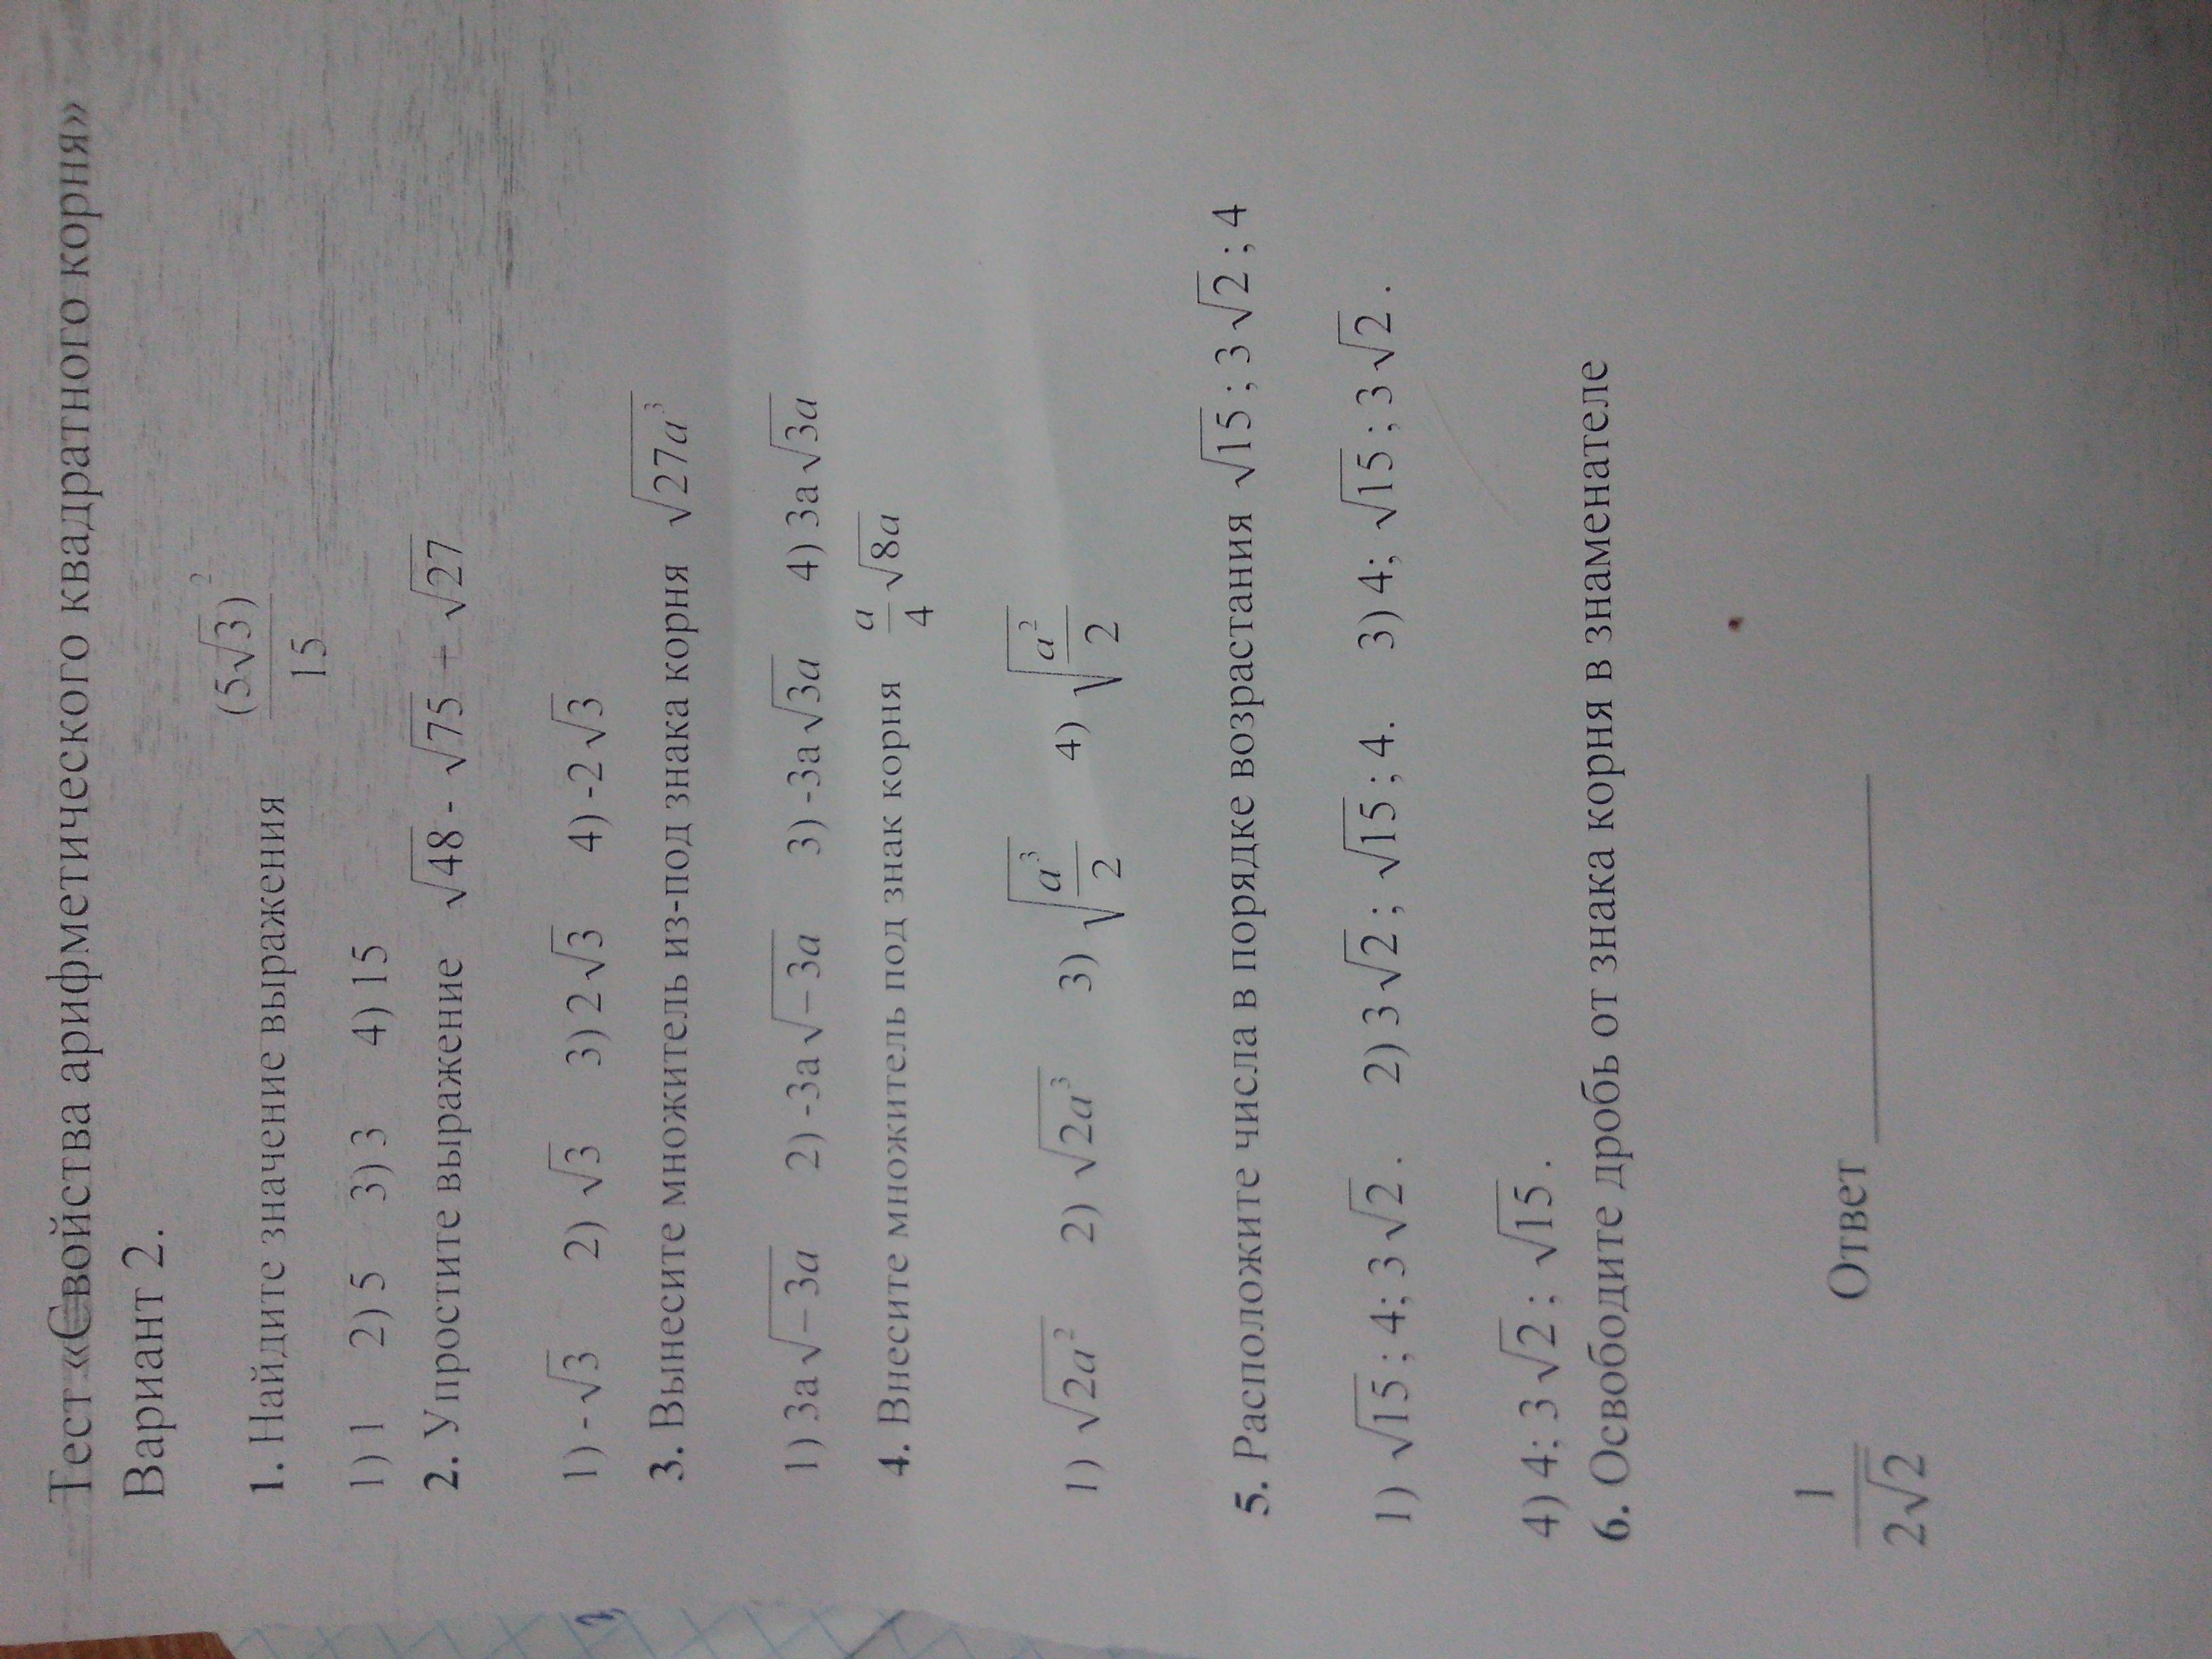 Тест «Свойства арифметического квадратного корня»
Вариант 2.
1. Найдите значение выражения (5√3)² / 15
1) 1 2) 5 3) 3 4) 15
2. Упростите выражение √48 - √75 + √27
1) -√3 2) √3 3) 2√3 4) -2√3
3. Вынесите множитель из-под знака корня √27a³
1) 3а√−3a 2) -3а√−3a 3) -3а√3a 4) 3а√3a
4. Внесите множитель под знак корня a/4 √8a
1) √2a² 2) √2a³ 3) √(a³/2) 4) √(a²/2)
5. Расположите числа в порядке возрастания √15 ; 3√2 ; 4
1) √15 ; 4; 3√2 . 2) 3√2 ; √15 ; 4. 3) 4; √15 ; 3√2 .
4) 4; 3√2 ; √15 .
6. Освободите дробь от знака корня в знаменателе
1/(2√2) Ответ ______________